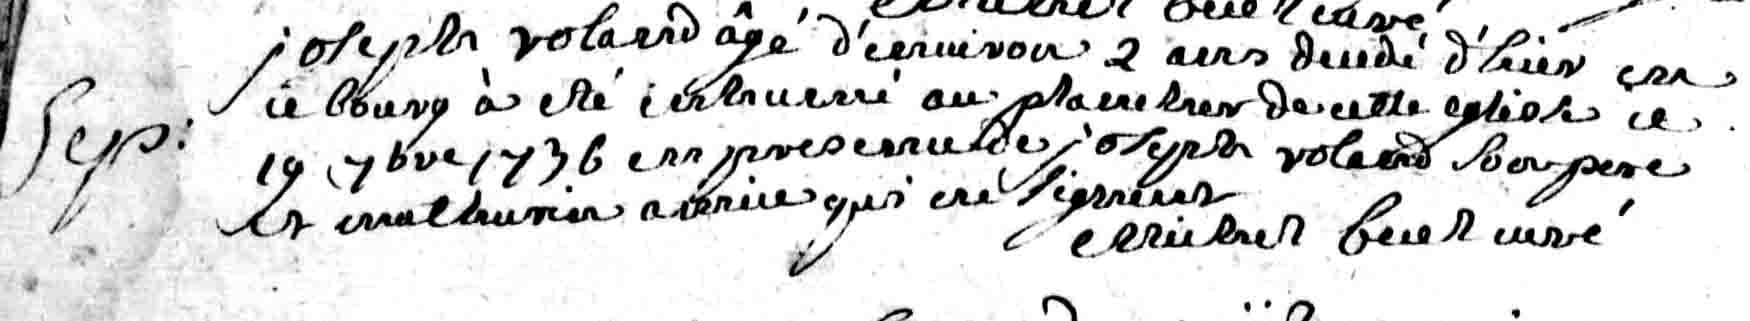 curé
joseph rolland âgé d'environ 2 ans decedé d'hier en
ce bourg à eté enterré au placitre de cette eglise ce
Sep: 19 7bre 1736 en presence de joseph rolland son pere
et mathurin qui ne signent
curé